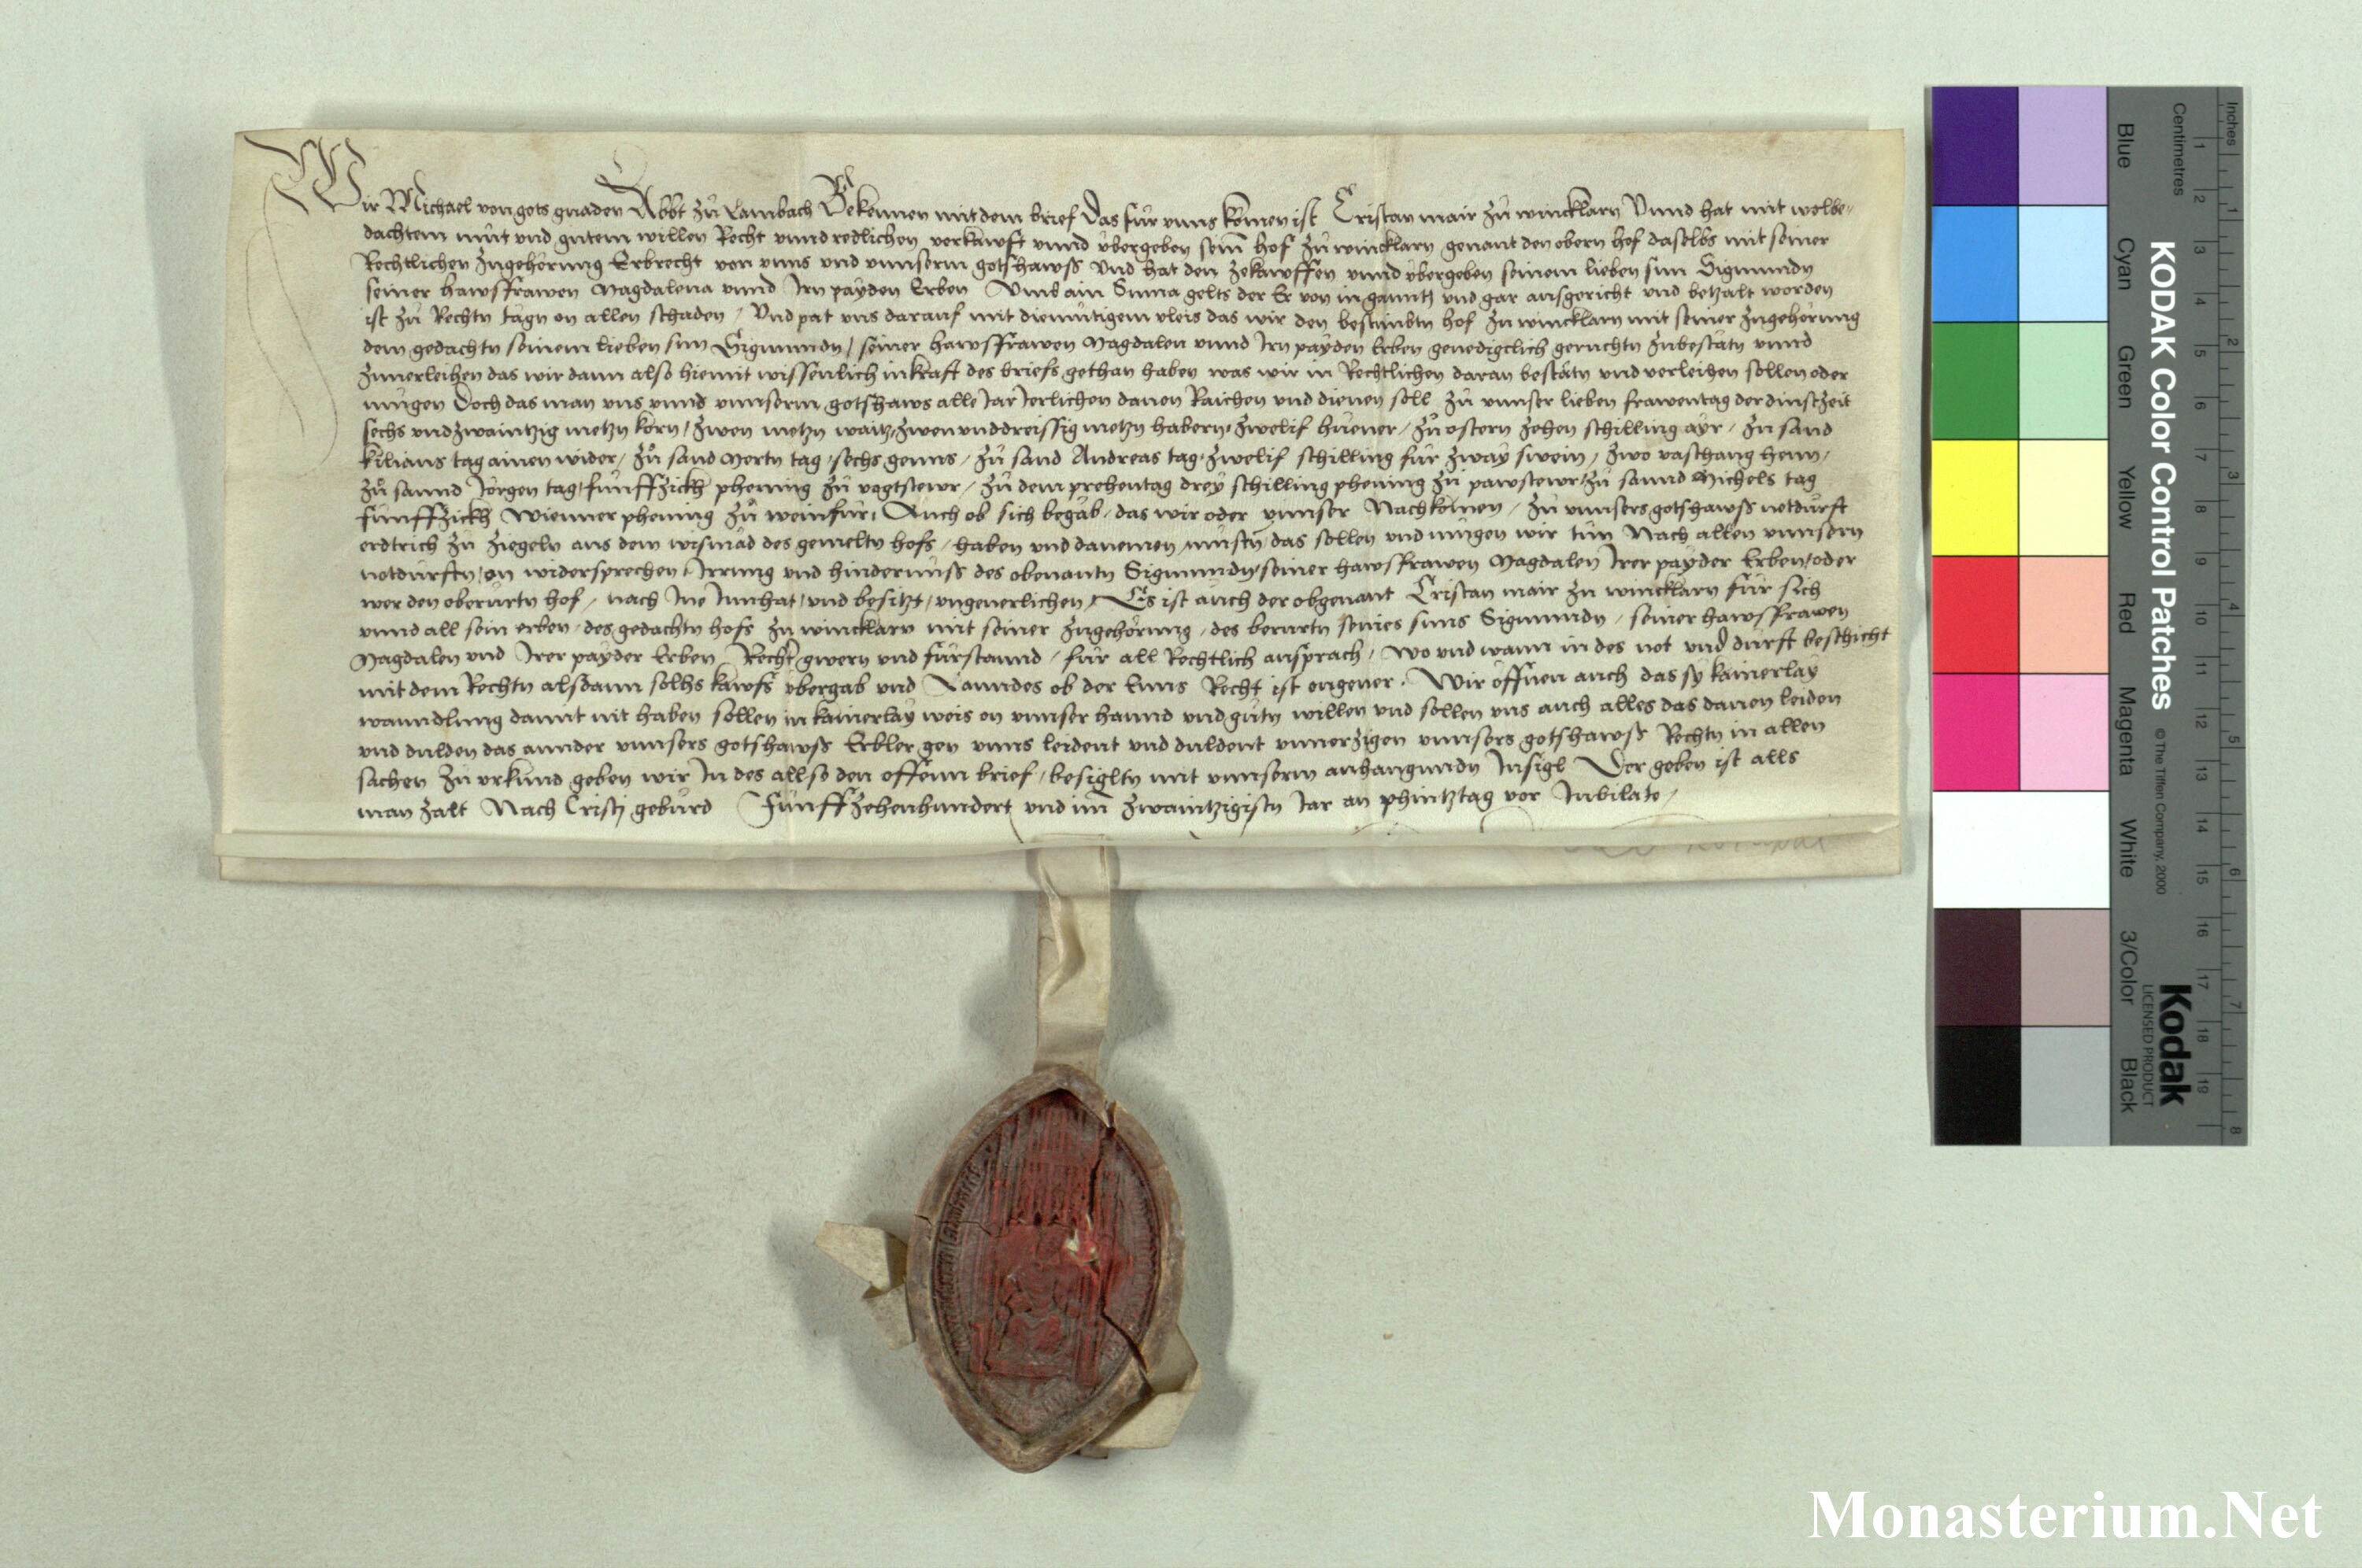 Wir Michael von gots gnaden Abbt zů Lambach Bekennen mit dem brief Das für vnns komen ist Cristan mair zů wincklarn Vnnd hat mit wolbe-
dachtem můt vnd gutem willen Recht vnnd redlichen verkawft vnnd vbergeben sein hof zů wincklarn genant den obern hof daselbs mit seiner
Rechtlichen zugehorung Erbrecht von vnns vnd vnnserm gotshawss Vnd hat den zekawffen vnnd vbergeben seinem lieben sun Sigmundn
seiner hawsfrawen Magdalena vnnd Irn payden Erben Vmb ain Suma gelts der Er von in gantz vnd gar ausgericht vnd betzalt worden
ist zů Rechtn tagn on allen schaden / Vnd pat vns darauf mit diemutigem vleis das wir den bestimbtn hof zu wincklarn mit seiner zugehorung
dem gedachtn seinem lieben sun Sigmundn / seiner hawsfrawen Magdalen vnnd Irn payden Erben genedigclich geruchtn zubestatn vnnd
zuuerleihen das wir dann also hiemit wissenlich in kraft des briefs gethan haben was wir in Rechtlichen daran bestatn vnd verleihen sollen oder
mugen Doch das man vns vnnd vnnserm gotshaws alle Jar Jerlichen dauon Raichen vnd dienen soll zů vnnser lieben frawentag der dinstzeit
sechs vnd zwaintzig metzn korn / zwen metzn waitz / zwen vnd dreissig metzn habern / zwelif huener / zů ostern zehen schilling ayr / zu sand
kilians tag ainen wider / zů sand Mertn tag / sechs genns / zů sand Andreas tag / zwelif schilling für zway swein / zwo vaschang henn /
zů sannd Jorgen tag / funffzickh phening zů vogtstewr / zů dem prehentag drey schilling phening zů pawstewr / zů sannd Michels tag
funffzickh Wienner phening zů weinfur / Auch ob sich begab / das wir oder vnnser Nachkomen / zů vnnsers gotshawss notdurft
erdtrich zů ziegeln aus dem wismad des gemeltn hofs / haben vnd danemen mustn das sollen vnd mugen wir tun Nach allen vnnsern
notdurftn / on widersprechen Irrung vnd hindernuss des obenantn Sigmundn / seiner hawsfrawen Magdalen Irer payder Erben / oder
wer den oberurtn hof / nach Ine Innhat / vnd besitzt / vngeuerlichen / Es ist auch der obgenant Cristan mair zu wincklarn für sich
vnnd all sein erben / des gedachtn hofs zu wincklarn mit seiner zugehorung / des berurtn seines suns Sigmundn / seiner hawsfrawen
Magdalen vnd Irer payder Erben Recht gwern vnd fürstannd / für all Rechtlich ansprach / Wo vnd wann in des not vnd durft beschicht
mit dem Rechtn alsdann solhs kawfs vbergab vnd Lanndes ob der Enns Recht ist ongeuer / Wir offnen auch das sy kainerlay
wanndlung damit nit haben sollen in kainerlay weis on vnnser hannd vnd gutn willen vnd sollen vns auch alles das dauon leiden
vnd dulden das annder vnnsers gotshawss Erbler gen vnns leident vnd duldent vnuerzigen vnnsers gotshawss Rechtn in allen
sachen zů vrkund geben wir In des allso den offenn brief / besigltn mit vnnserm anhangundn Insigl Der geben ist alls
man zalt Nach Cristj geburd Funffzehenhundert vnd im zwaintzigistn Jar an phintztag vor Jubilate /
KODAK Color Control Patches © The Tiffen Company, 2000
Kodak
LICENSED PRODUCT
Inches 1 2 3 4 5 6 7 8
Centimetres 1 2 3 4 5 6 7 8 9 10 11 12 13 14 15 16 17 18 19
Blue Cyan Green Yellow Red Magenta White 3/Color Black
Monasterium.Net